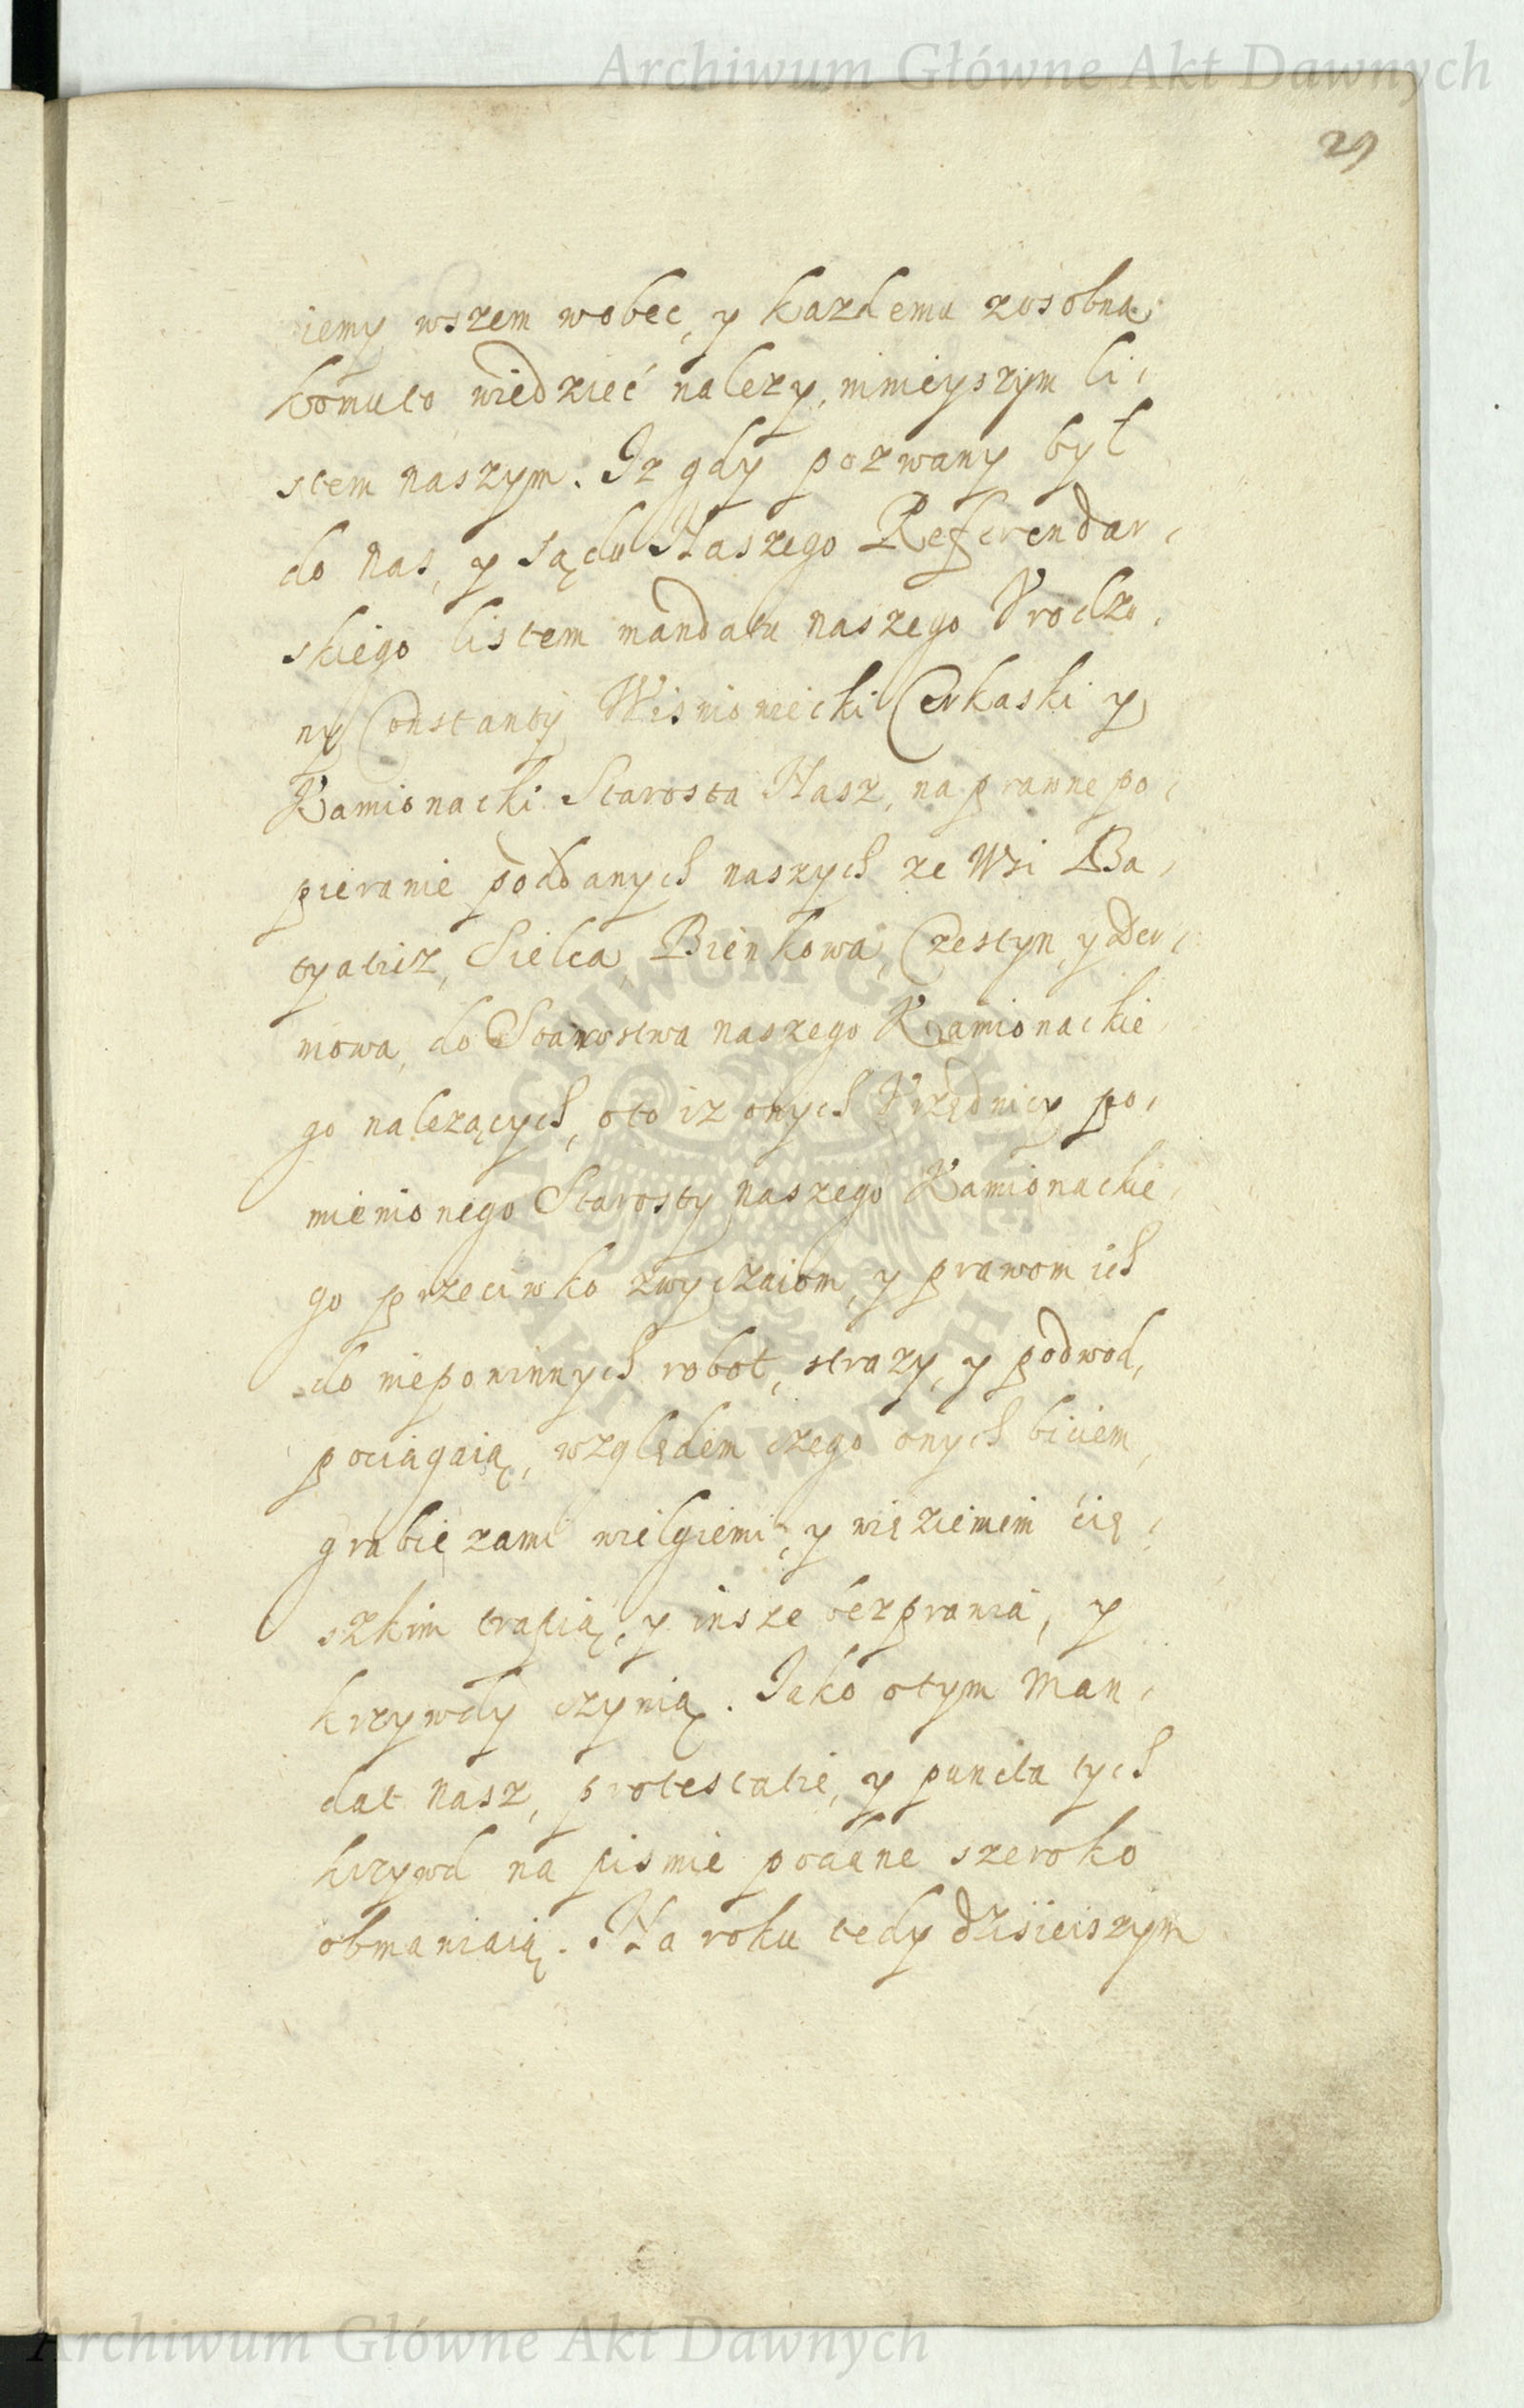 Archiwum Główne Akt Dawnych
29
iemy wszem wobec, y kazdemu zosobna,
komuto wiedzieć nalezy, ninieyszym li,
stem naszym. Iz gdy pozwany był
do nas, y sądu Naszego Referendar,
skiego listem mandatu naszego Vrodzo,
ny Constanty Wisniowiecki Cerkaski y
Kamionacki Starosta Nasz, na prawne po,
pieranie poddanych naszych ze Wsi Ba,
tyaticz, Sielca, Bienkowa, Czestyn, y Der,
nowa, do Starostwa naszego Kamionackie,
go nalezących, oto iz onych Vrzędnicy po,
mienionego Starosty naszego Kamionackie,
go przeciwko zwyczaiom, y prawom ich
do niepowinnych robot, strazy, y podwod,
pociągaią, względem czego onych biciem,
grabiezami wielgiemi, y więzieniem cię,
szkim trapią, y insze bezprawia, y
krzywdy czynią. Iako otym Man,
dat nasz, protestatie, y puncta tych
krzywd na pismie podane szeroko
obmawiaią. Na roku tedy dzisieiszym
ARCHIWUM GŁÓWNE AKT DAWNYCH
Archiwum Główne Akt Dawnych